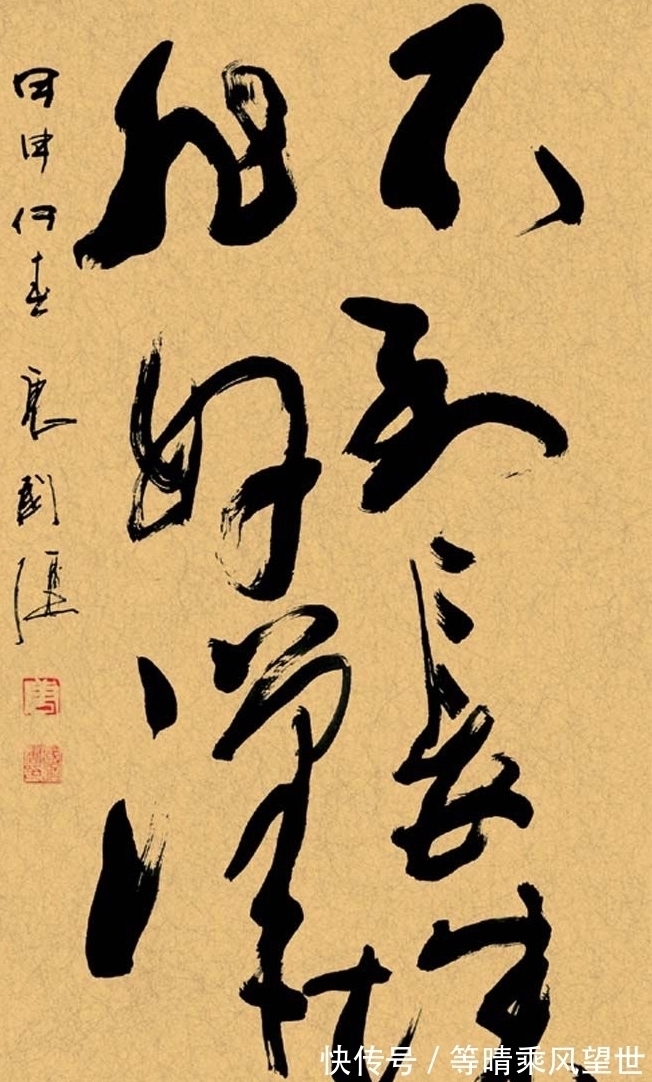 不到長城
非好漢
甲申仲春 唐国强
快传号 / 等晴乘风望世